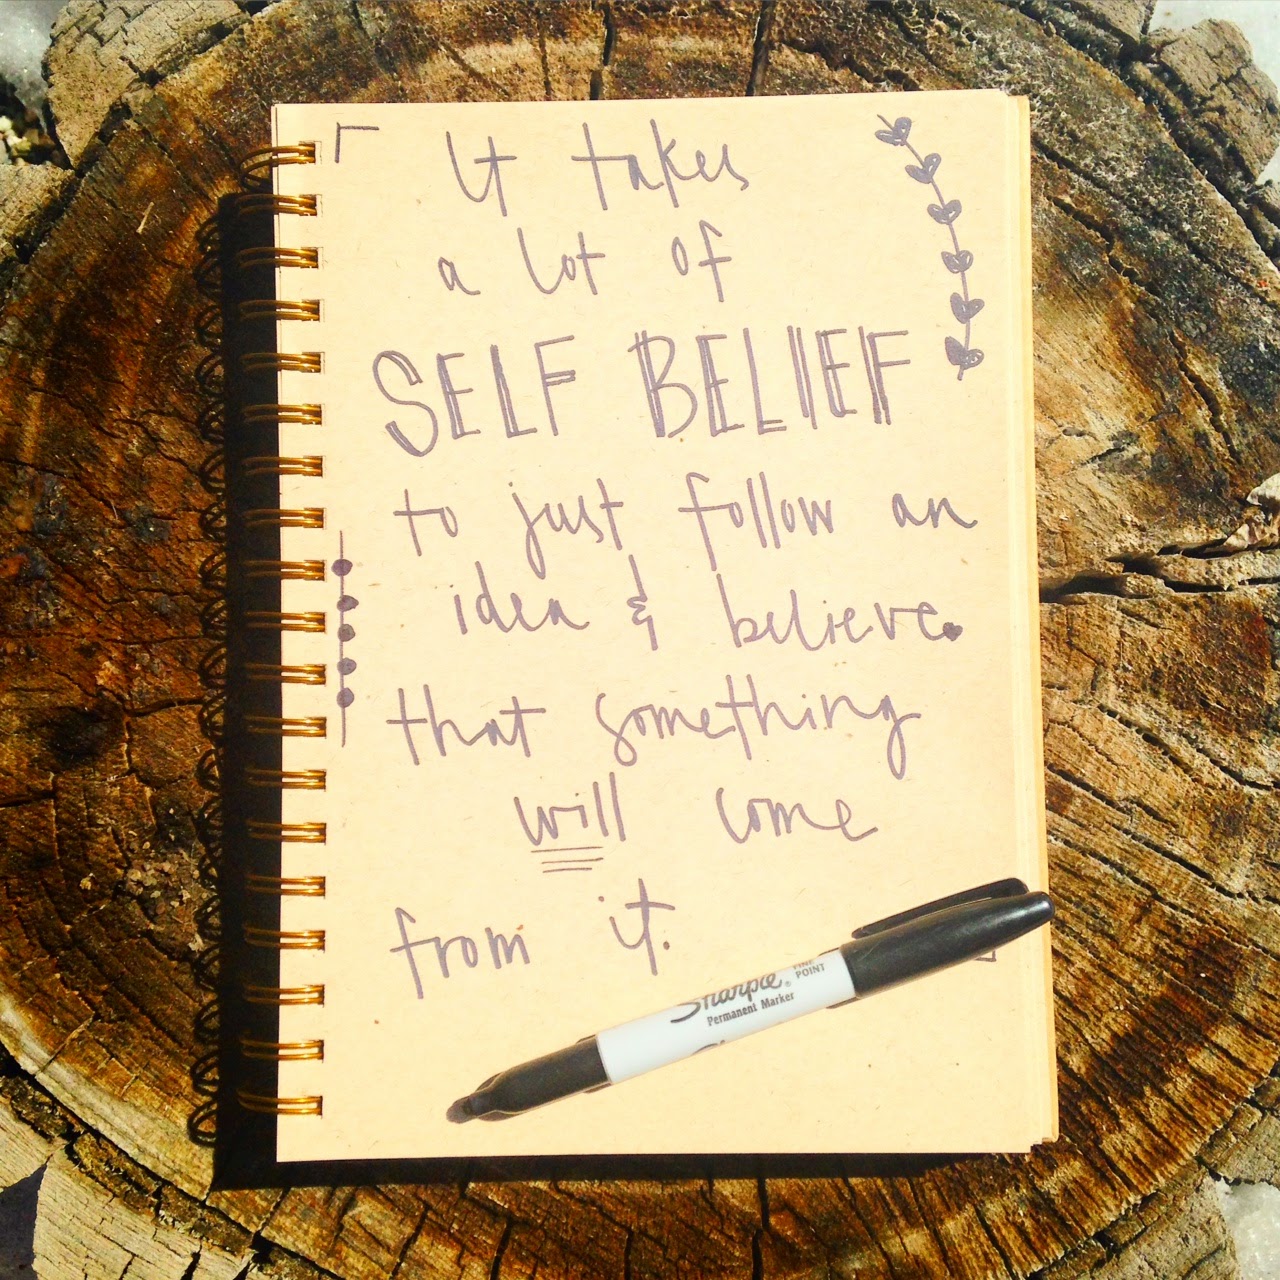 It takes
a lot of
SELF BELIEF
to just follow an
idea & believe
that something
will come
from it.
Sharpie®
FINE
POINT
Permanent Marker